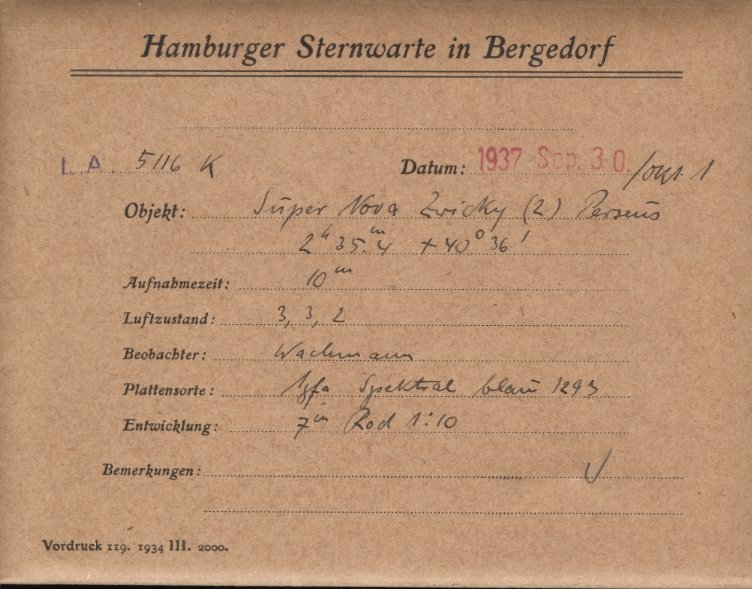 Hamburger Sternwarte in Bergedorf
L A. 5116 K Datum: 1937 Sep. 30. /Okt 1
Objekt: Super Nova Zwicky (2) Perseus
2h 35.m4 +40° 36'
Aufnahmezeit: 10m
Luftzustand: 3, 3, 2
Beobachter: Wachmann
Plattensorte: Agfa Spektral blau 1293
Entwicklung: 7m Rod 1:10
Bemerkungen:
Vordruck 119. 1934 III. 2000.